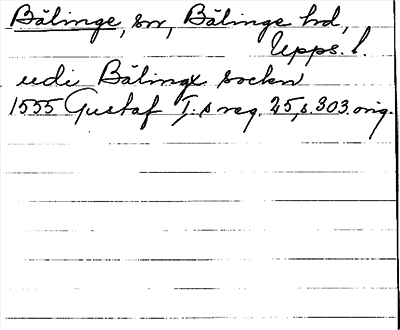 Bälinge, sn, Bälinge hd,
Upps. l.
udi Bälinge sockn
1555 Gustaf I:s reg. 25, s. 303. orig.